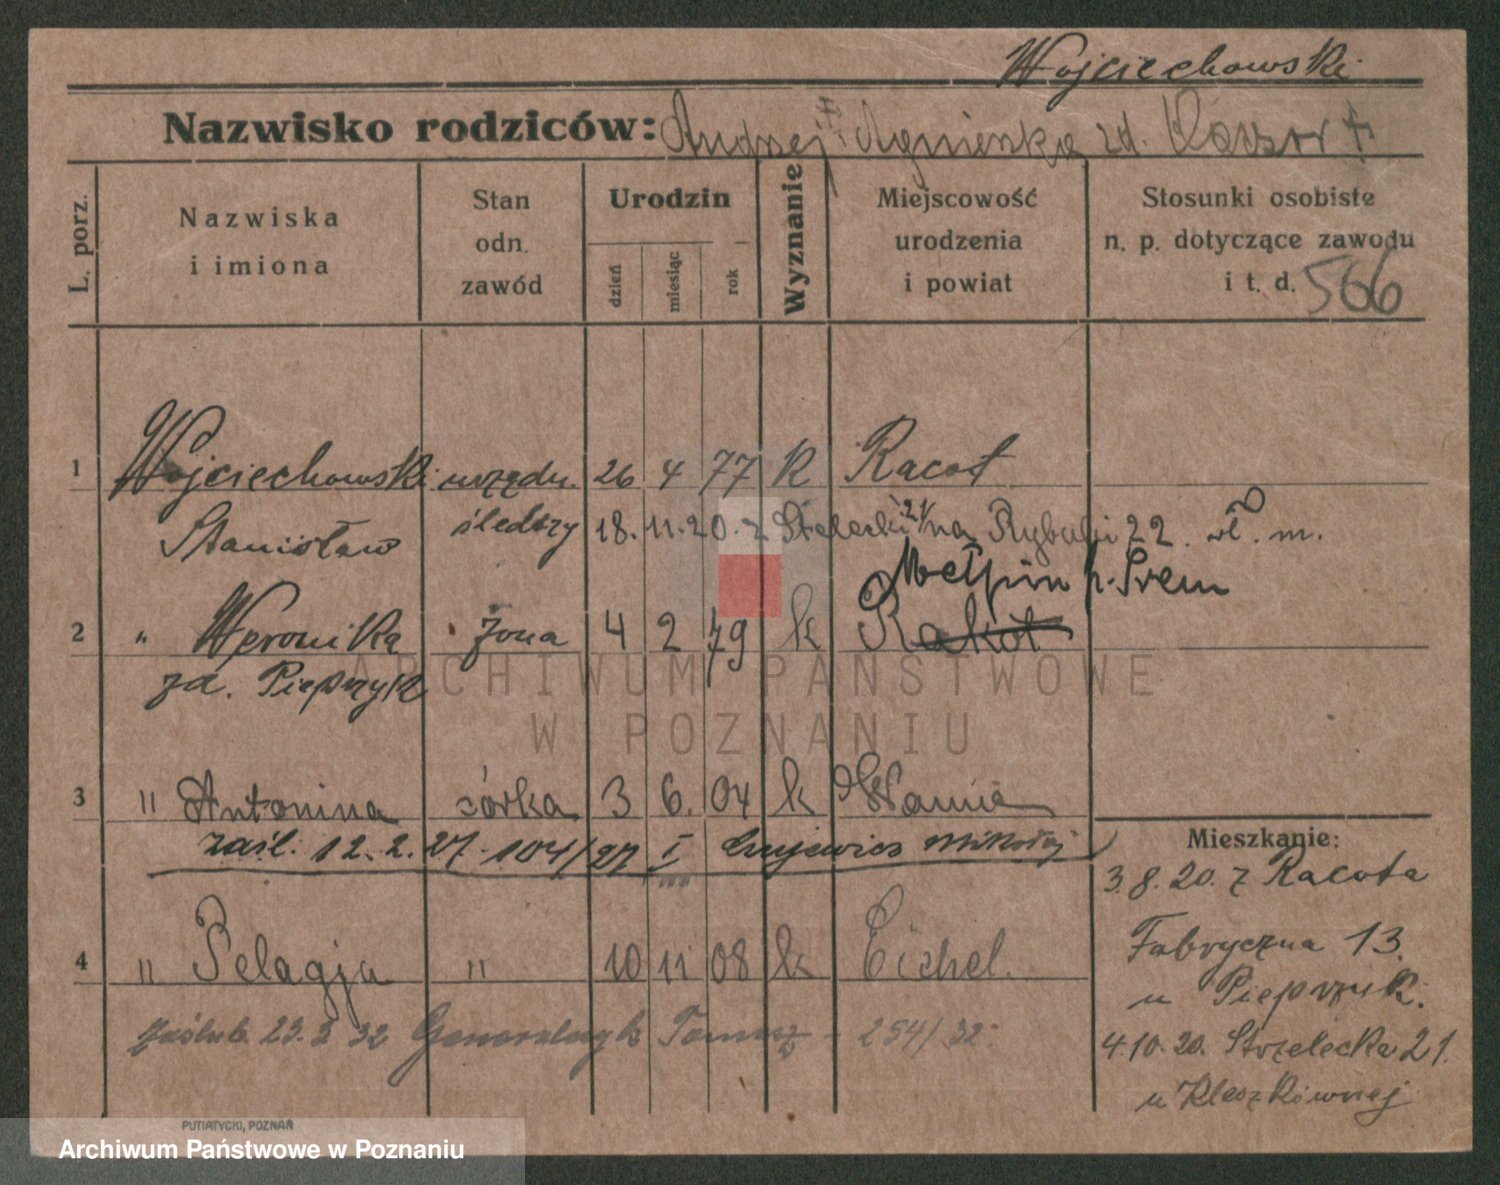 Wojciechowski
Nazwisko rodziców: Andrzej † Agnieszka zd. †
L. porz.
Nazwiska i imiona
Stan odn. zawód
Urodzin
dzień miesiąc rok
Wyznanie
Miejscowość urodzenia i powiat
Stosunki osobiste n. p. dotyczące zawodu i t. d. 566
1 Wojciechowski urzędn. 26 4 77 k Racot
Stanisław śledczy 18. 11. 20. z Strzelecki 21/ na Rybaki 22. wł. m.
Mełpin p. Śrem
2 " Weronika żona 4 2 79 k Rakot
zd. Pieprzyk
3 " Antonina córka 3 6. 04 k
zaśl. 12. 2. 27 - 104/27 I Mikołaj
Mieszkanie:
3. 8. 20. z Racota
Fabryczna 13.
u Pieprzyk.
4 " Pelagja " 10 11 08 k Eichel.
zaślub. 23. 3 32 Tomasz - 254/32.
4. 10. 20. Strzelecka 21.
u Kleszkównej
PUTIATYCKI, POZNAŃ
ARCHIWUM PAŃSTWOWE
W POZNANIU
Archiwum Państwowe w Poznaniu